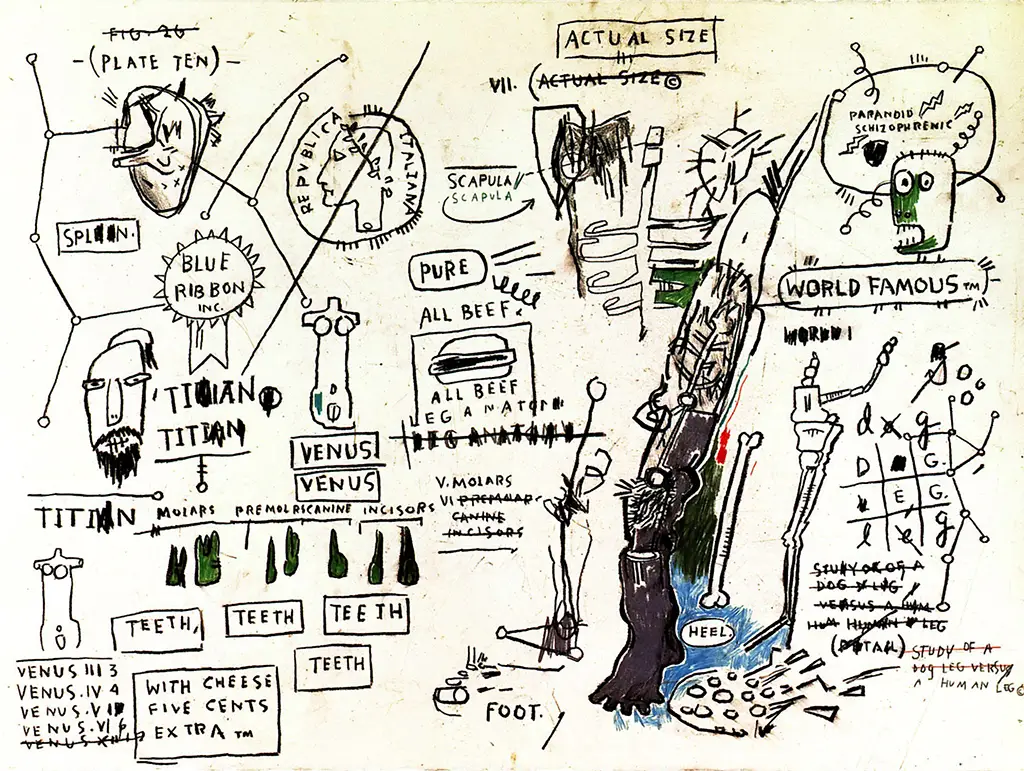 FIG. 26
-(PLATE TEN)-
ACTUAL SIZE
VII. (ACTUAL SIZE ©
PARANOID
SCHIZOPHRENIC
REPVBLICA ITALIANA
SCAPULA
SCAPULA
SPLEEN.
BLUE
RIBBON
INC.
PURE
ALL BEEF.
WORLD FAMOUS TM
ALL BEEF
LEG ANATOMY
LEG ANATOMY
TITIAN
TITIAN
VENUS
VENUS
d o g
D G.
E G.
l e g
TITIAN
MOLARS PREMOLARS CANINE INCISORS
V. MOLARS
VI PREMOLAR
CANINE
INCISORS
STUDY OF OF A
DOG LEG
VERSUS A
HUMAN LEG
(DETAIL)
TEETH,
TEETH
TEETH
TEETH
HEEL
STUDY OF A
DOG LEG VERSUS
A HUMAN LEG ©
VENUS III 3
VENUS. IV 4
VENUS. V
VENUS. VI 6
VENUS
WITH CHEESE
FIVE CENTS
EXTRA TM
FOOT.